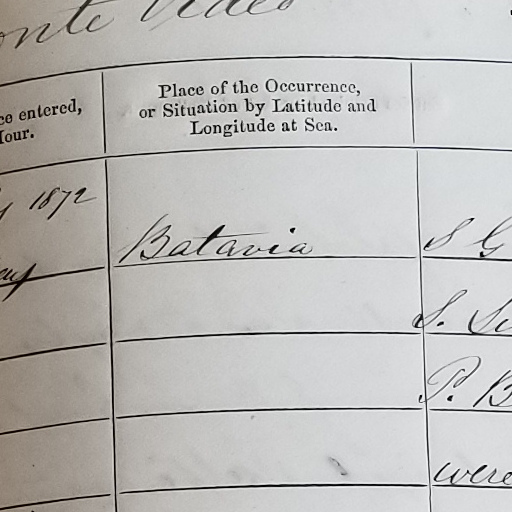 onte Video
ce entered,
Hour.
Place of the Occurrence,
or Situation by Latitude and
Longitude at Sea.
y 1872
Batavia
S G
S. Su
P. B
were